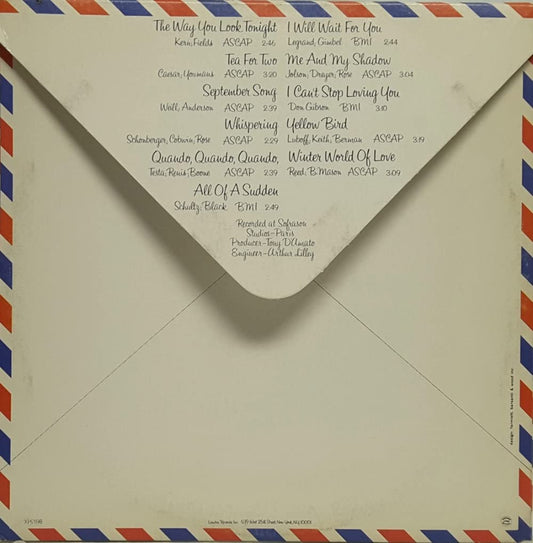 The Way You Look Tonight I Will Wait For You
Kern, Fields ASCAP 2:46 Legrand, Gimbel BMI 2:44
Tea For Two Me And My Shadow
Caesar, Youmans ASCAP 3:20 Jolson, Dreyer, Rose ASCAP 3:04
September Song I Can't Stop Loving You
Weill, Anderson ASCAP 2:39 Don Gibson BMI 3:10
Whispering Yellow Bird
Schonberger, Coburn, Rose ASCAP 2:29 Luboff, Keith, Berman ASCAP 3:19
Quando, Quando, Quando, Winter World Of Love
Testa, Renis, Boone ASCAP 2:39 Reed, B. Mason ASCAP 3:09
All Of A Sudden
Schultz, Black BMI 2:49
Recorded at Sofrason
Studios-Paris
Producer-Tony D'Amato
Engineer-Arthur Lilley
design:
London Records Inc. 539 West 25th Street, New York, N.Y. 10001